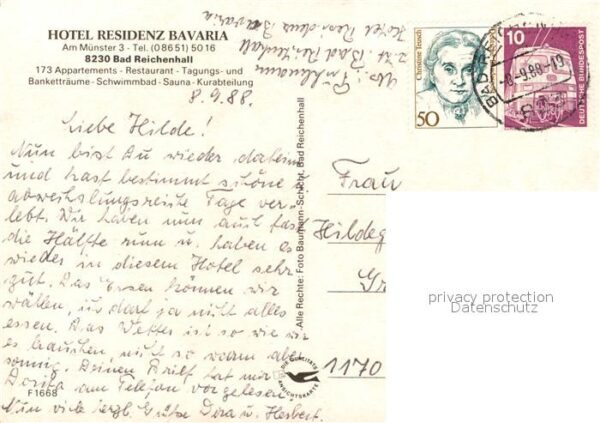 HOTEL RESIDENZ BAVARIA
Am Münster 3 - Tel. (08651) 5016
8230 Bad Reichenhall
173 Appartements - Restaurant - Tagungs- und
Banketträume - Schwimmbad - Sauna - Kurabteilung
Hotel Residenz Bavaria
z. Zt. Bad Reichenhall
8.9.88.
Liebe Hilde!
Nun bist Du wieder daheim
und hast bestimmt schöne u.
abwechslungsreiche Tage ver-
lebt. Wir haben nun auch fast
die Hälfte rum u. haben es
wieder in diesem Hotel sehr
gut. Das Essen können wir
wählen, nur darf ja nicht alles
essen. Das Wetter ist so wie wir
es brauchen, nicht so warm aber
sonnig. Deinen Brief hat mir
Dorita am Telefon vorgelesen.
Nun viele herzl. Grüße Dora u. Herbert.
F1668
Alle Rechte: Foto Baumann-Schicht, Bad Reichenhall
DIE QUALITÄTS
ANSICHTSKARTE
Christine Teusch
50
10
DEUTSCHE BUNDESPOST
BAD REI
-8.-9.88-09
Frau
Hildeg
Gr
1170
privacy protection
Datenschutz